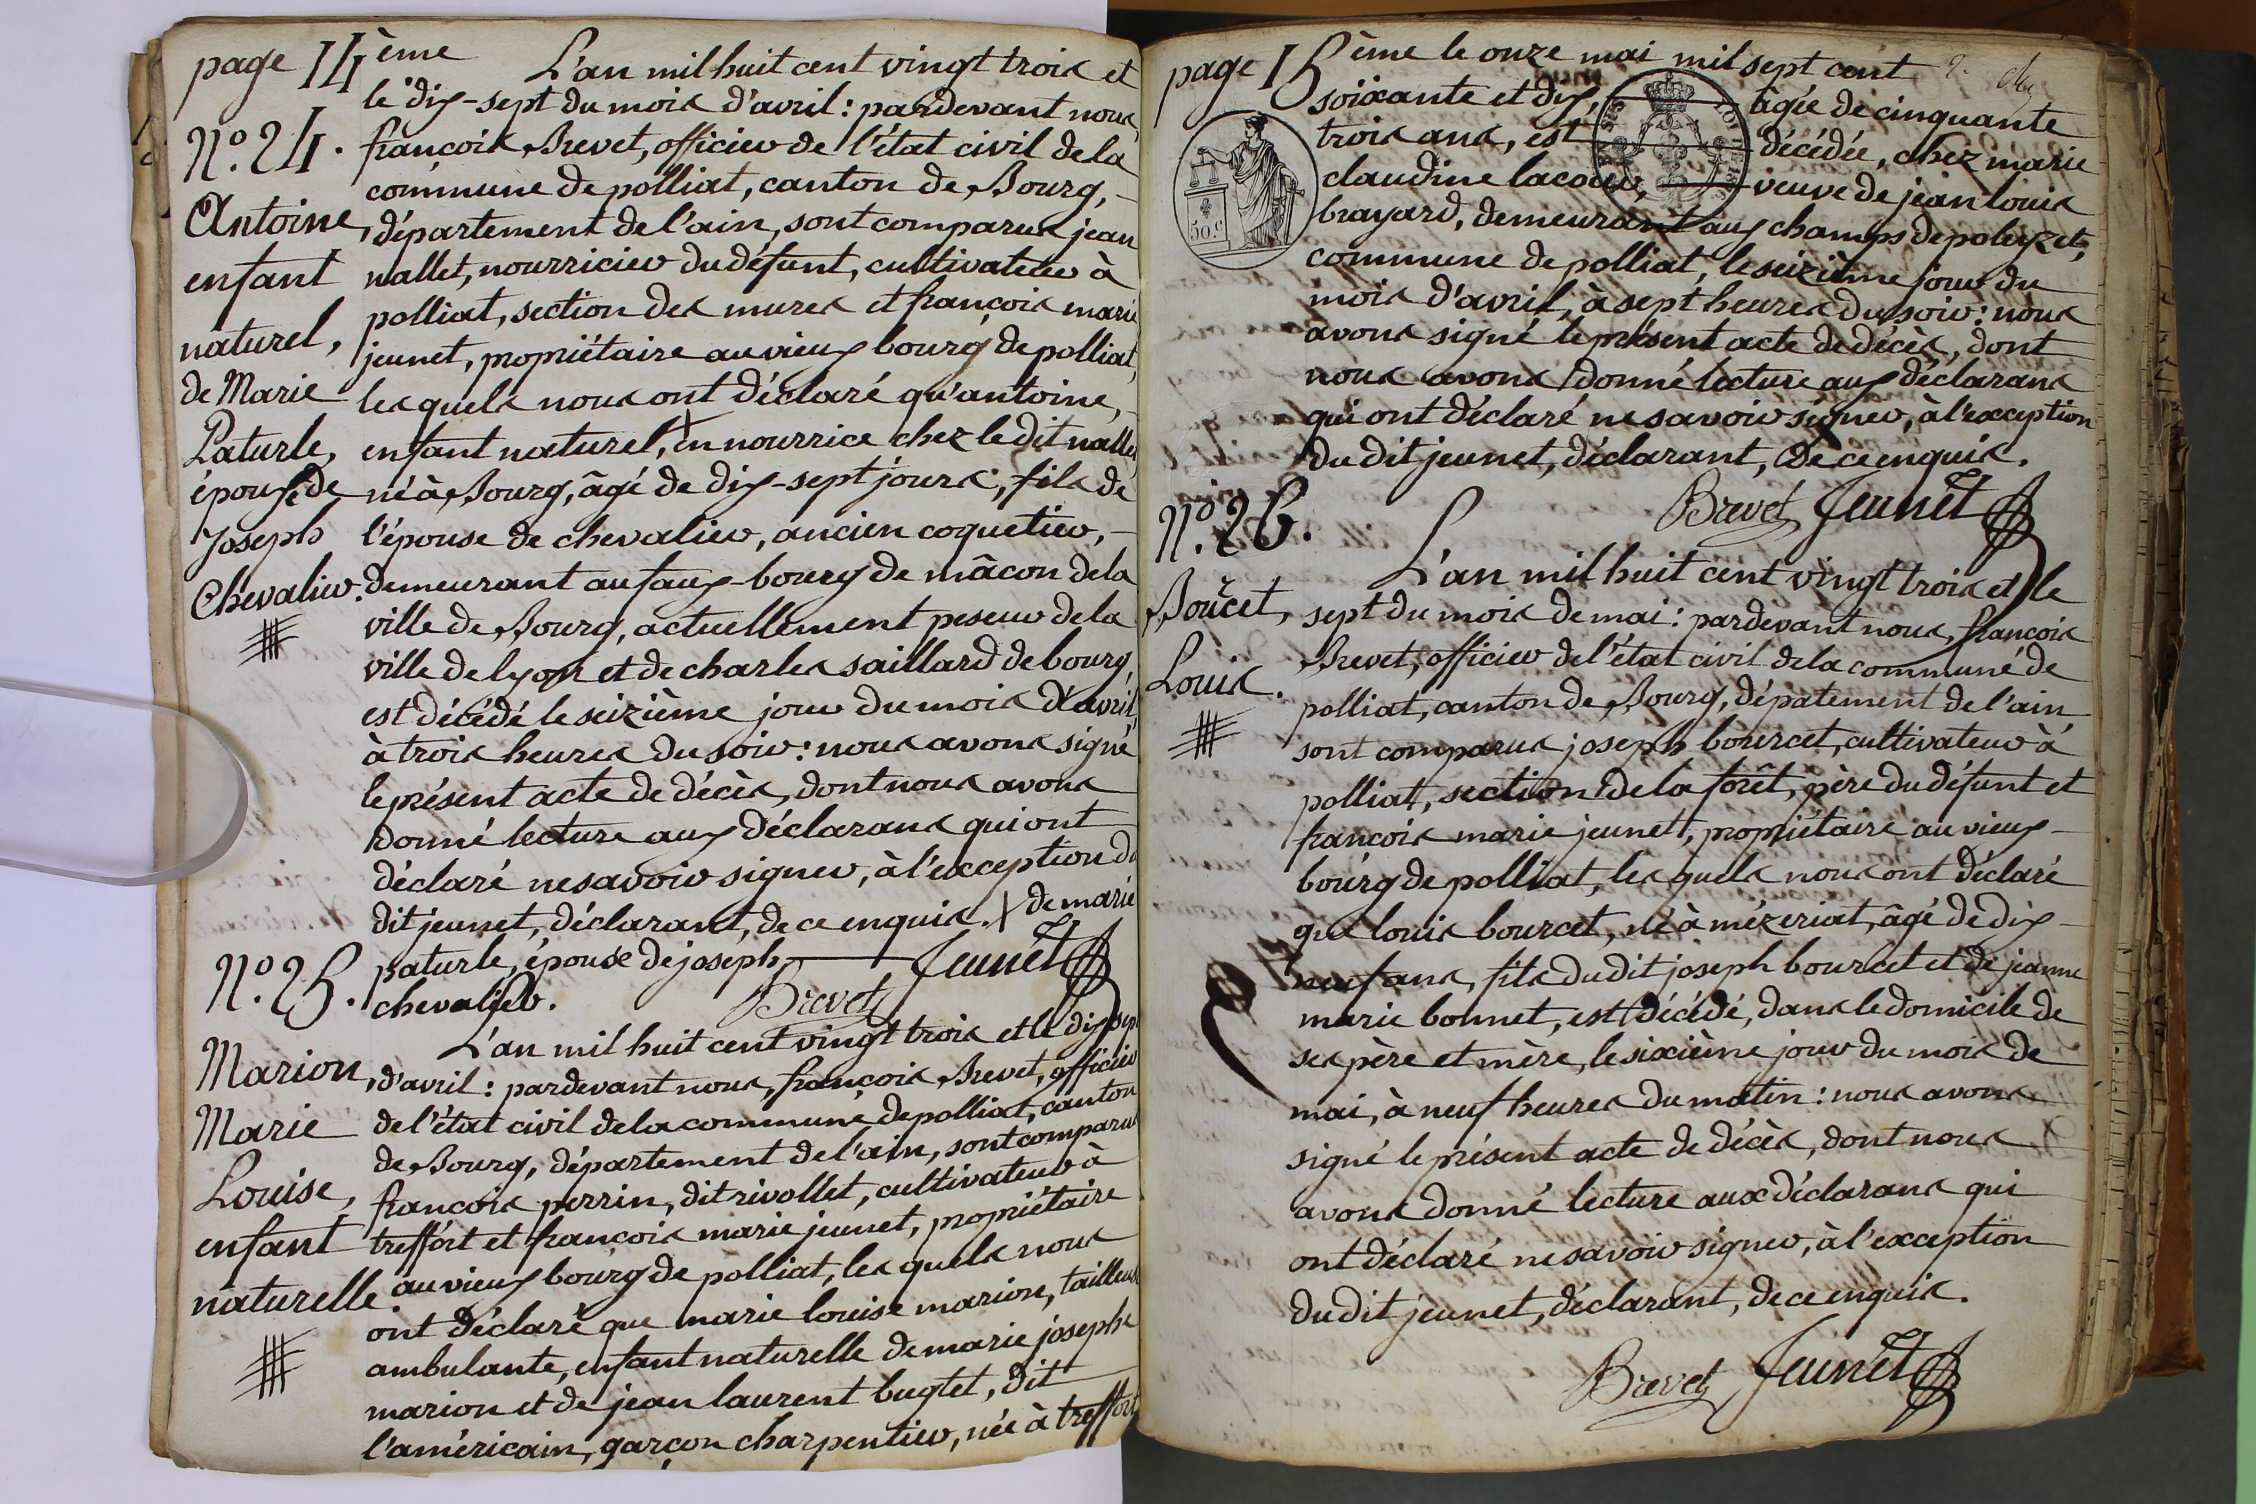 page 14ème
L'an mil huit cent vingt trois et
le dix-sept du mois d'avril: pardevant nous,
N.º 24.
françois Brevet, officier de l'état civil de la
commune de polliat, canton de Bourg, -
Antoine,
département de l'ain, sont comparus jean
enfant
nallet, nourricier du défunt, cultivateur à
polliat, section des mures et françois marie
naturel,
jeunet, propriétaire au vieux bourg de polliat,
de Marie
les quels nous ont déclaré qu'antoine, -
Paturle,
enfant naturel, en nourrice chez le dit nallet
épouse de
né à Bourg, âgé de dix-sept jours, fils de
Joseph
l'épouse de chevalier, ancien coquetier, -
Chevalier.
demeurant au faux-bourg de mâcon de la
ville de Bourg, actuellement peseur de la
ville de lyon et de charles saillard de bourg,
est décédé le seizième jour du mois d'avril,
à trois heures du soir: nous avons signé
le présent acte de décès, dont nous avons
donné lecture aux déclarans qui ont
déclaré ne savoir signer, à l'exception du
dit jeunet, déclarant, de ce enquis. + de marie
paturle, épouse de joseph
chevalier.
Brevet Jeunet
N.º 25.
L'an mil huit cent vingt trois et le dix sept
Marion,
d'avril: pardevant nous, françois Brevet, officier
Marie
de l'état civil de la commune de polliat, canton
de Bourg, département de l'ain, sont comparus
Louise,
françois perrin, dit rivollet, cultivateur à
enfant
treffort et françois marie jeunet, propriétaire
naturelle.
au vieux bourg de polliat, les quels nous
ont déclaré que marie louise marion, tailleuse
ambulante, enfant naturelle de marie josephe
marion et de jean laurent bugtet, dit
l'américain, garçon charpentier, née à treffort,
page 15ème le onze mai mil sept cent
soixante et dix, âgée de cinquante
trois ans, est décédée, chez marie
claudine lacour, veuve de jean louis
brayard, demeurant aux champs de poleyzet,
50.c
commune de polliat, le seizième jour du
mois d'avril, à sept heures du soir: nous
avons signé le présent acte de décès, dont
nous avons donné lecture aux déclarans
qui ont déclaré ne savoir signer, à l'exception
du dit jeunet, déclarant, de ce enquis.
Brevet Jeunet
N.º 26.
L'an mil huit cent vingt trois et le
Bourcet,
sept du mois de mai: pardevant nous, françois
Louis.
Brevet, officier de l'état civil de la commune de
polliat, canton de Bourg, département de l'ain
sont comparus joseph bourcet, cultivateur à
polliat, section de la forêt, père du défunt et
françois marie jeunet, propriétaire au vieux -
bourg de polliat, les quels nous ont déclaré
que louis bourcet, né à mézeriat, âgé de dix -
neuf ans, fils du dit joseph bourcet et de jeanne
marie bonnet, est décédé, dans le domicile de
ses père et mère, le sixième jour du mois de
mai, à neuf heures du matin: nous avons
signé le présent acte de décès, dont nous
avons donné lecture aux déclarans qui
ont déclaré ne savoir signer, à l'exception
du dit jeunet, déclarant, de ce enquis.
Brevet Jeunet